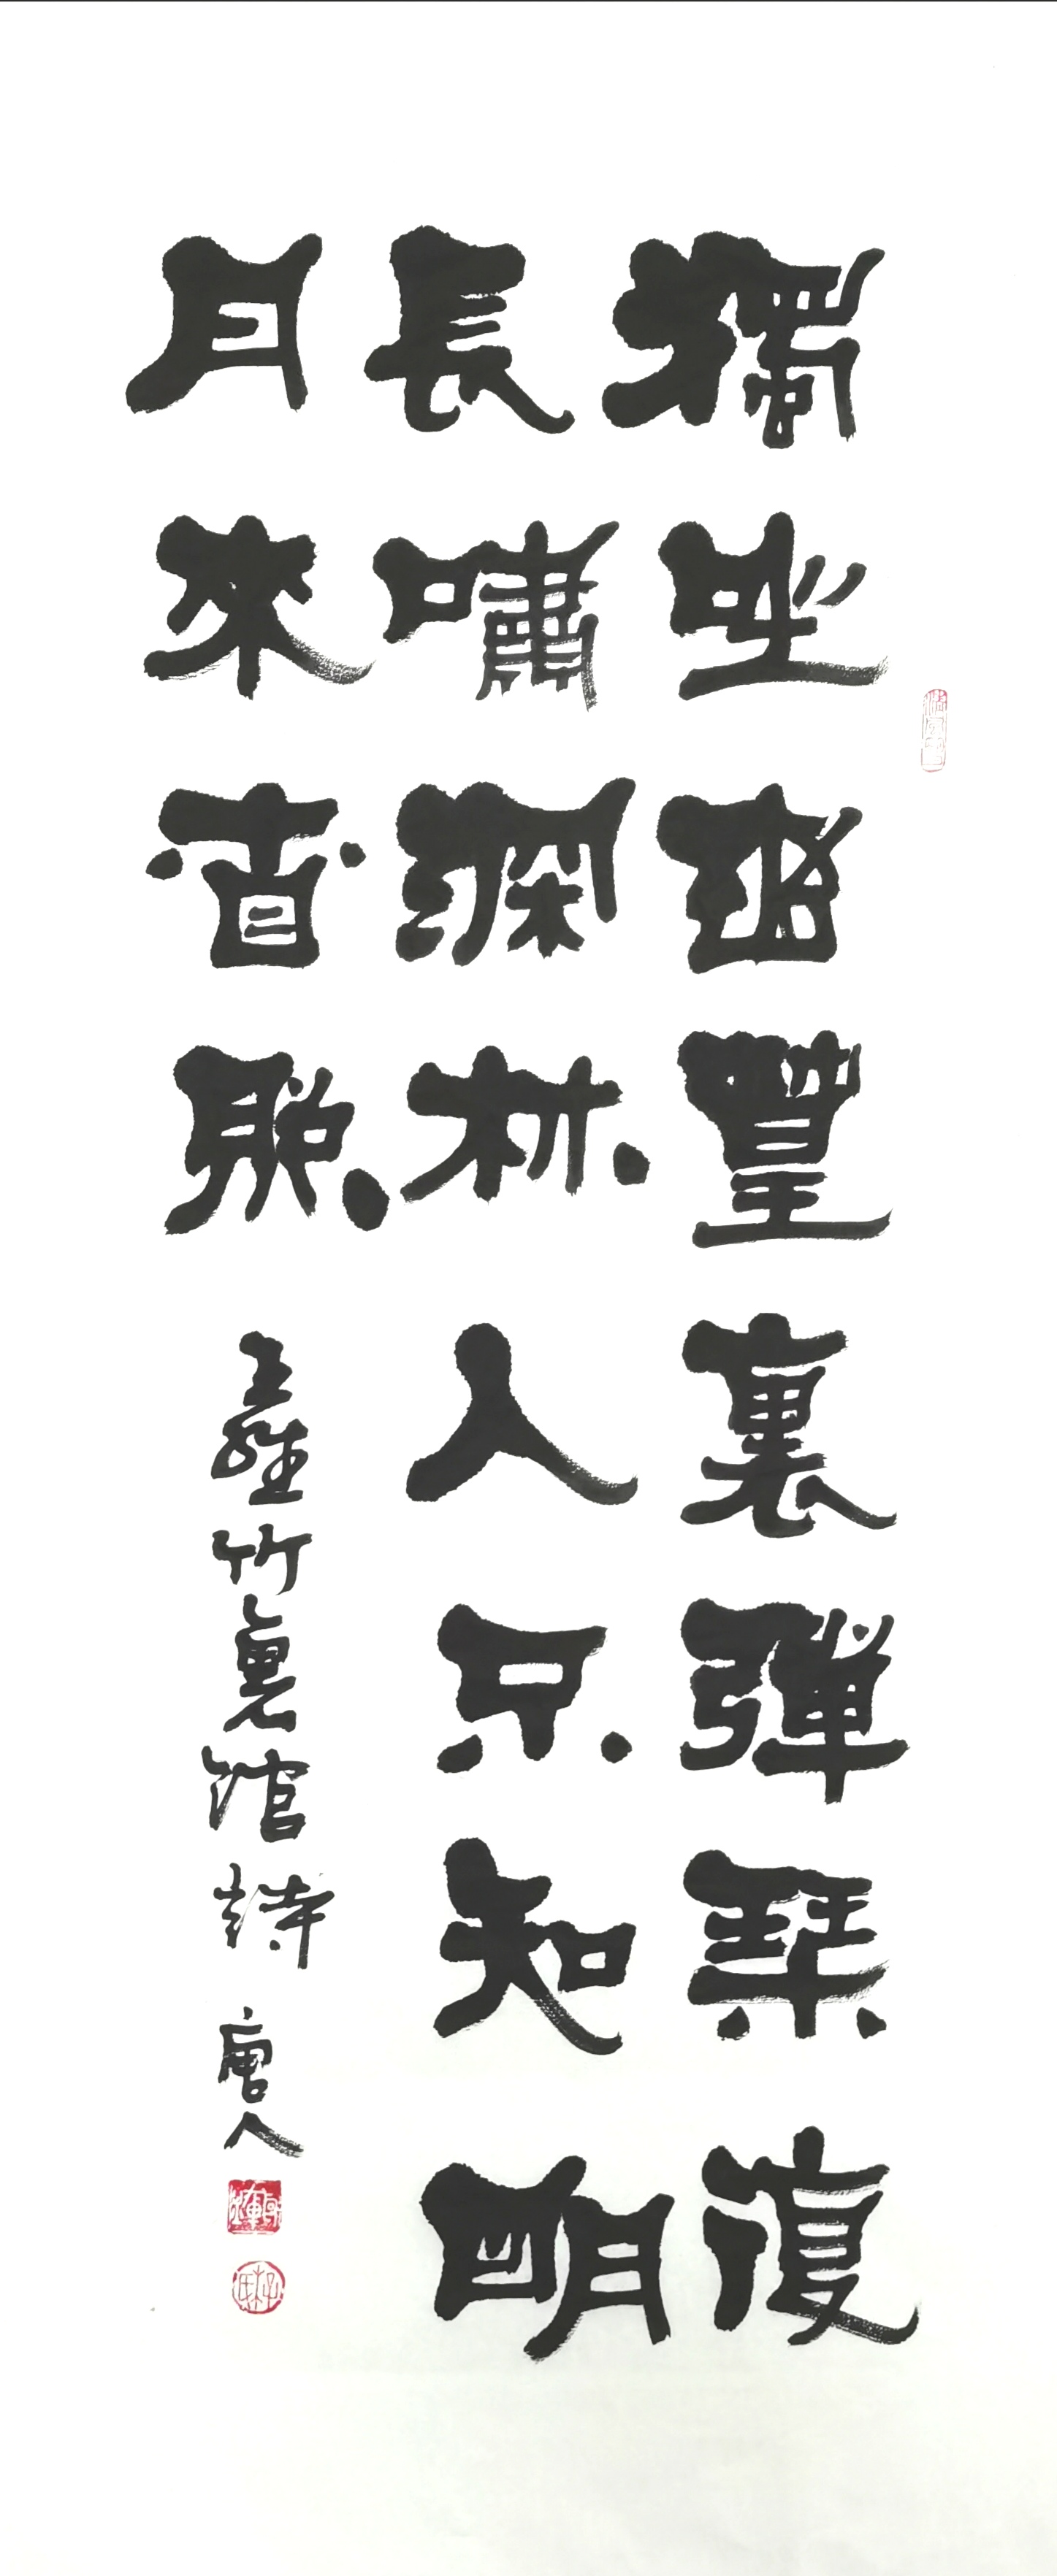 獨坐幽篁裏彈琴復
長嘯深林人不知明
月來相照
王維竹裏館詩 唐人